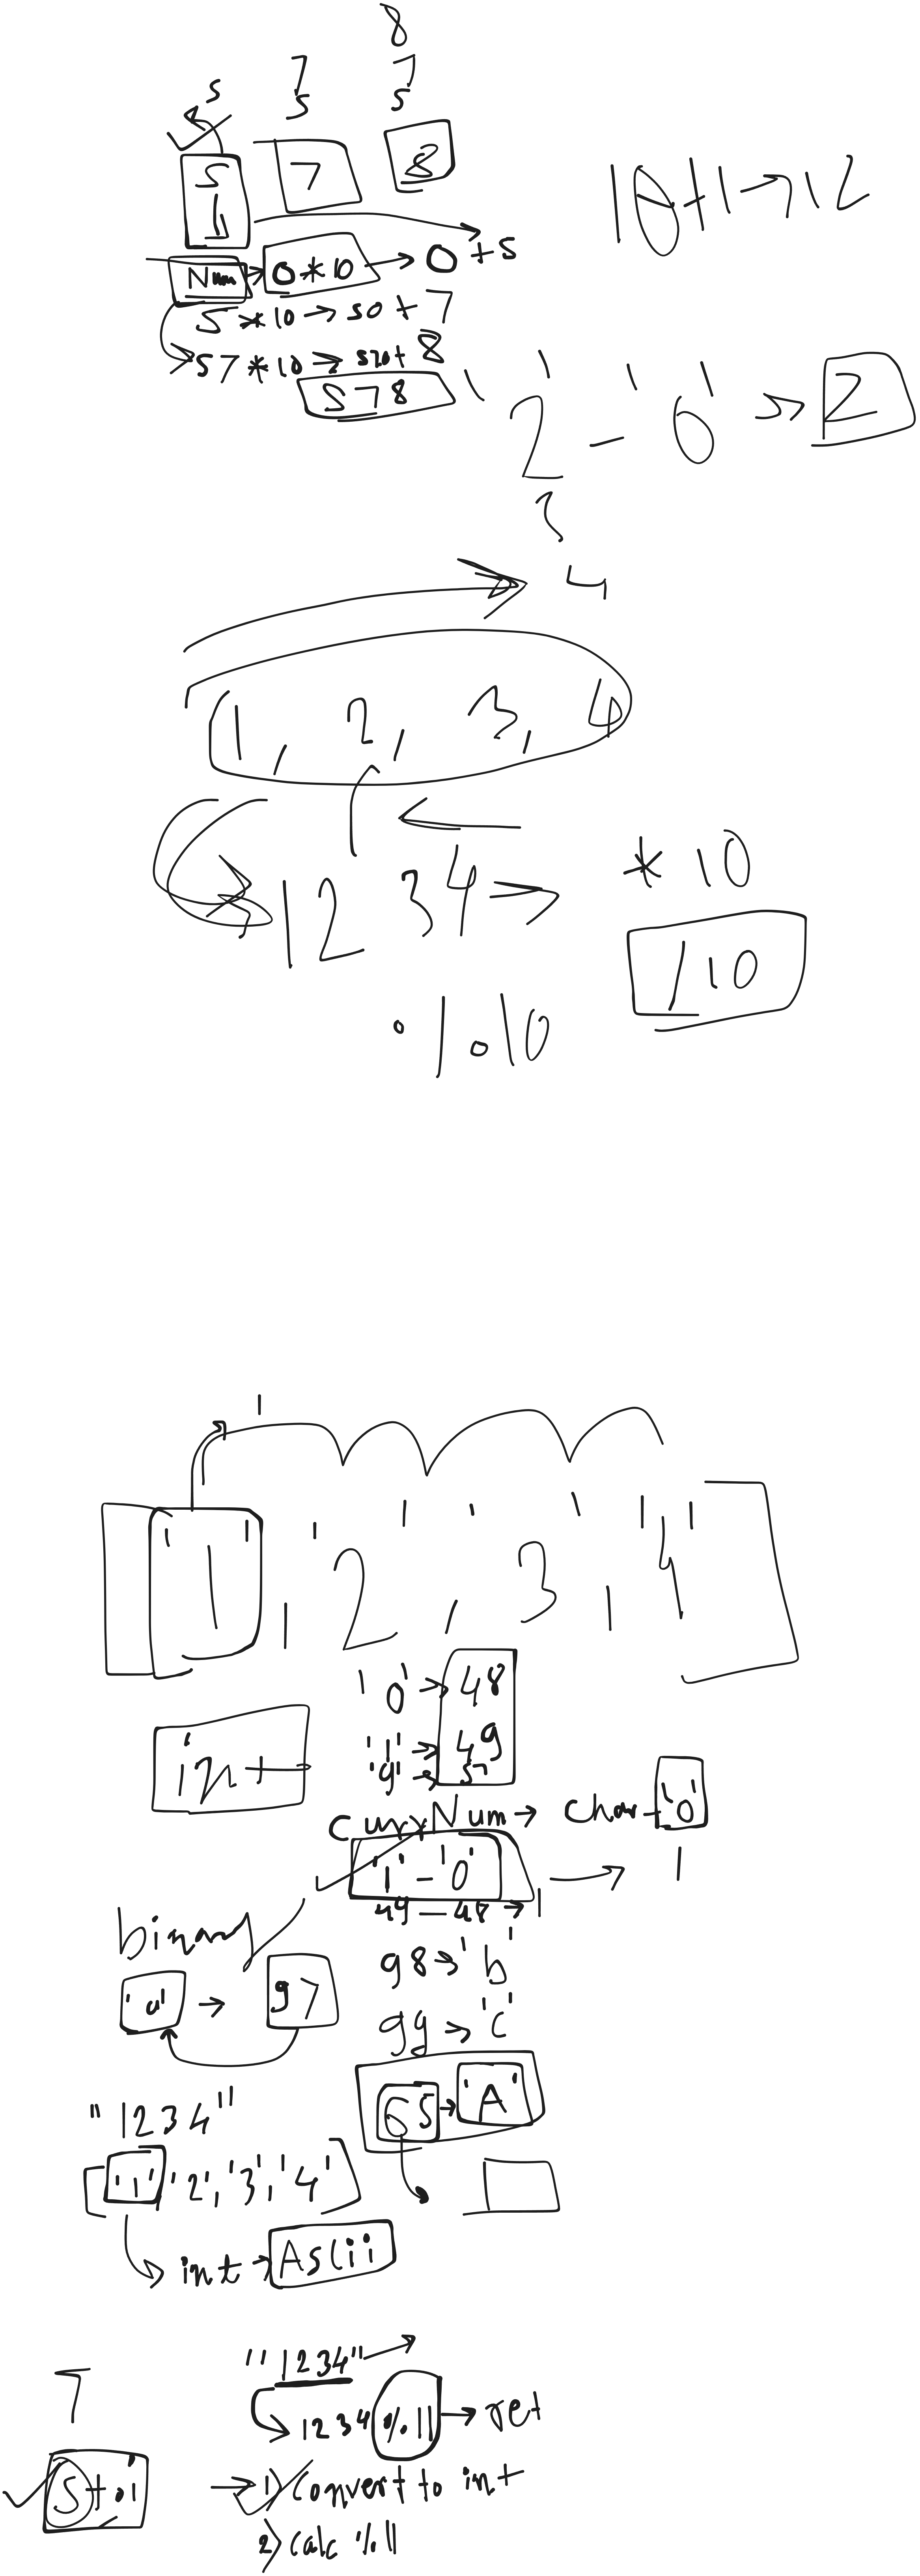 8
7 7
5 5 5
5 7 8
1
10+1→12
Num → 0*10 → 0+5
5*10→50+7
57*10→570+8
578
'2' - '0' → 2
4
1, 2, 3, 4
1234 → *10
/10
%10
'1', '2', '3', '4'
'0' → 48
'1' → 49
'9' → 57
int
currNum → char - '0'
'1' - '0' → 1
49 - 48 → 1
binary
98→'b'
'a' → 97
99→'c'
65→'A'
"1234"
['1', '2', '3', '4']
int → Ascii
"1234" →
1234 % 11 → ret
stoi
→ 1) Convert to int
2) calc % 11